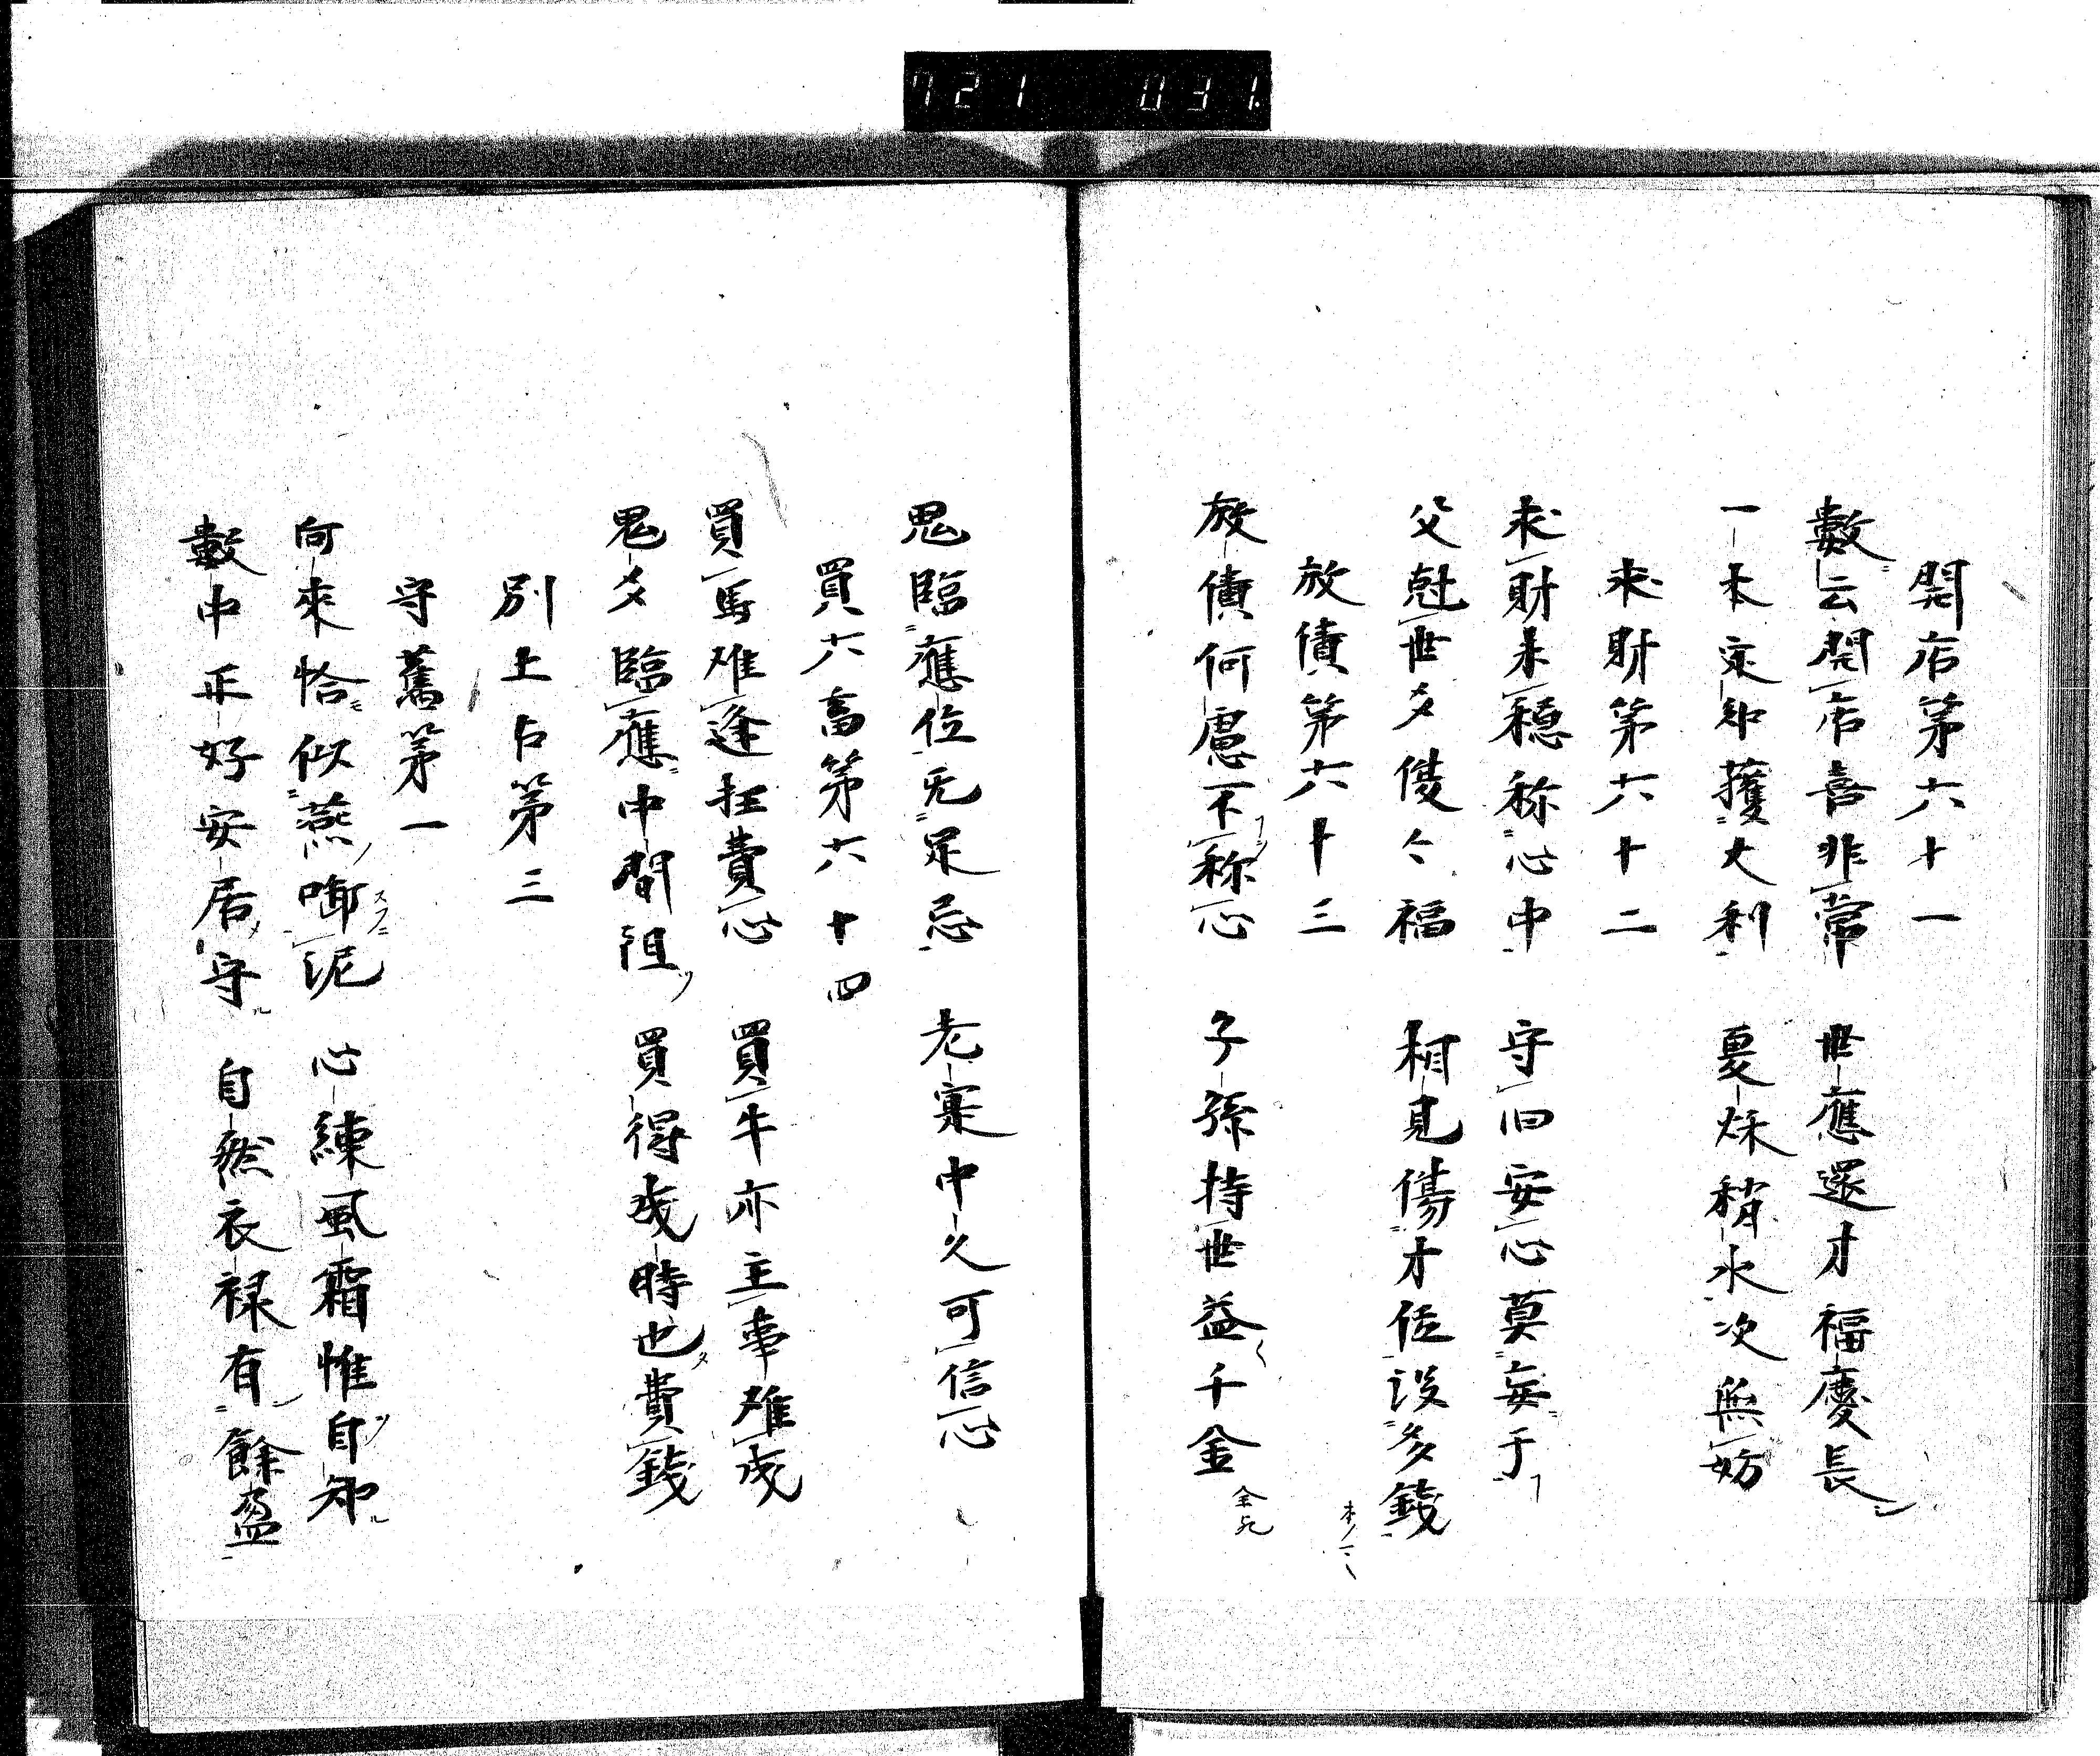 開店第六十一
數云開店喜非常　世應還才福慶長
一本定知獲大利　夏秌稍水次無妨
求財第六十二
求財未穏称心中　守旧安心莫妄于
父尅世多傻々福　相見傷才位設多錢
放債第六十三
放債何慮不称心　子孫持世益千金
鬼臨應位无足忌　老寀中久可信心
買六畜第六十四
買馬难逢狂費心　買牛亦主事难成
鬼多臨應中間阻　買得成時也費錢
別上占第三
守舊第一
向來恰似燕啣泥　心練風霜惟自知
數中正好安居守　自然衣禄有餘盈
721 031